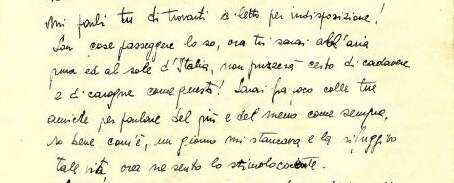 Mi parli tu di trovarti a letto per indisposizione!
Son cose passeggere lo so, ora tu sarai all'aria
pura ed al sole d'Italia, non puzzerà certo di cadavere
e di carogne come questa! Sarai fra poco colle tue
amiche per parlare del più e del meno come sempre,
so bene com'è, un giorno mi stancava e la rifuggivo
tale vita, ora ne sento lo stimolo